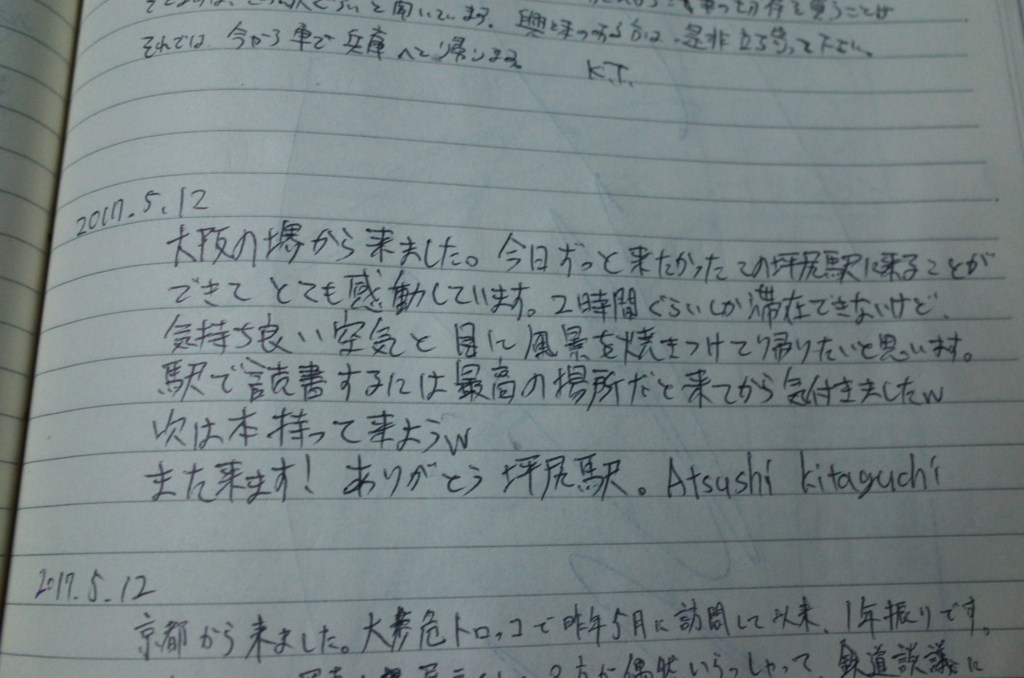 と聞いています。興味のある方は、是非立ち寄って下さい。
それでは、今から車で兵庫へと帰ります。 K.T.
2017.5.12
大阪の堺から来ました。今日ずっと来たかったこの坪尻駅に来ることが
できて とても感動しています。2時間ぐらいしか滞在できないけど、
気持ち良い空気と 目に風景を焼きつけて帰りたいと思います。
駅で読書するには最高の場所だと来てから気付きましたw
次は本持って来ようw
また来ます! ありがとう 坪尻駅。 Atsushi kitaguchi
2017.5.12
京都から来ました。大歩危トロッコで昨年5月に訪問して以来、1年振りです。
偶然いらっしゃって、鉄道談議に